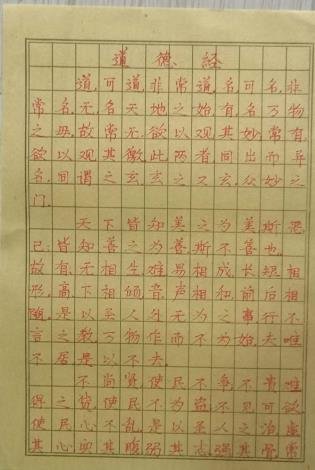 道德经
道,可道,非常道,名,可名,非
常名,无名天地之始,有名万物
之毋,故常无欲以观其妙常有
欲以观其徼,此两者同出而异
名,同谓之玄,玄之又玄,众妙之
门.
天下皆知美之为美,斯恶
已;皆知善之为善,斯不善也,
故有无相生,难易相成,长短相
形,高下相倾,音声相和,前后相
随,是以圣人斗无为之事,行不
言之教,万物作而不为始,夫唯
不居是以不去
不尚贤使民不争,不贵难
得之货,使民不为盗,不见可欲,
使民心不乱,是以圣人之治虚
其心,实其腹,弱其志,强其骨,常